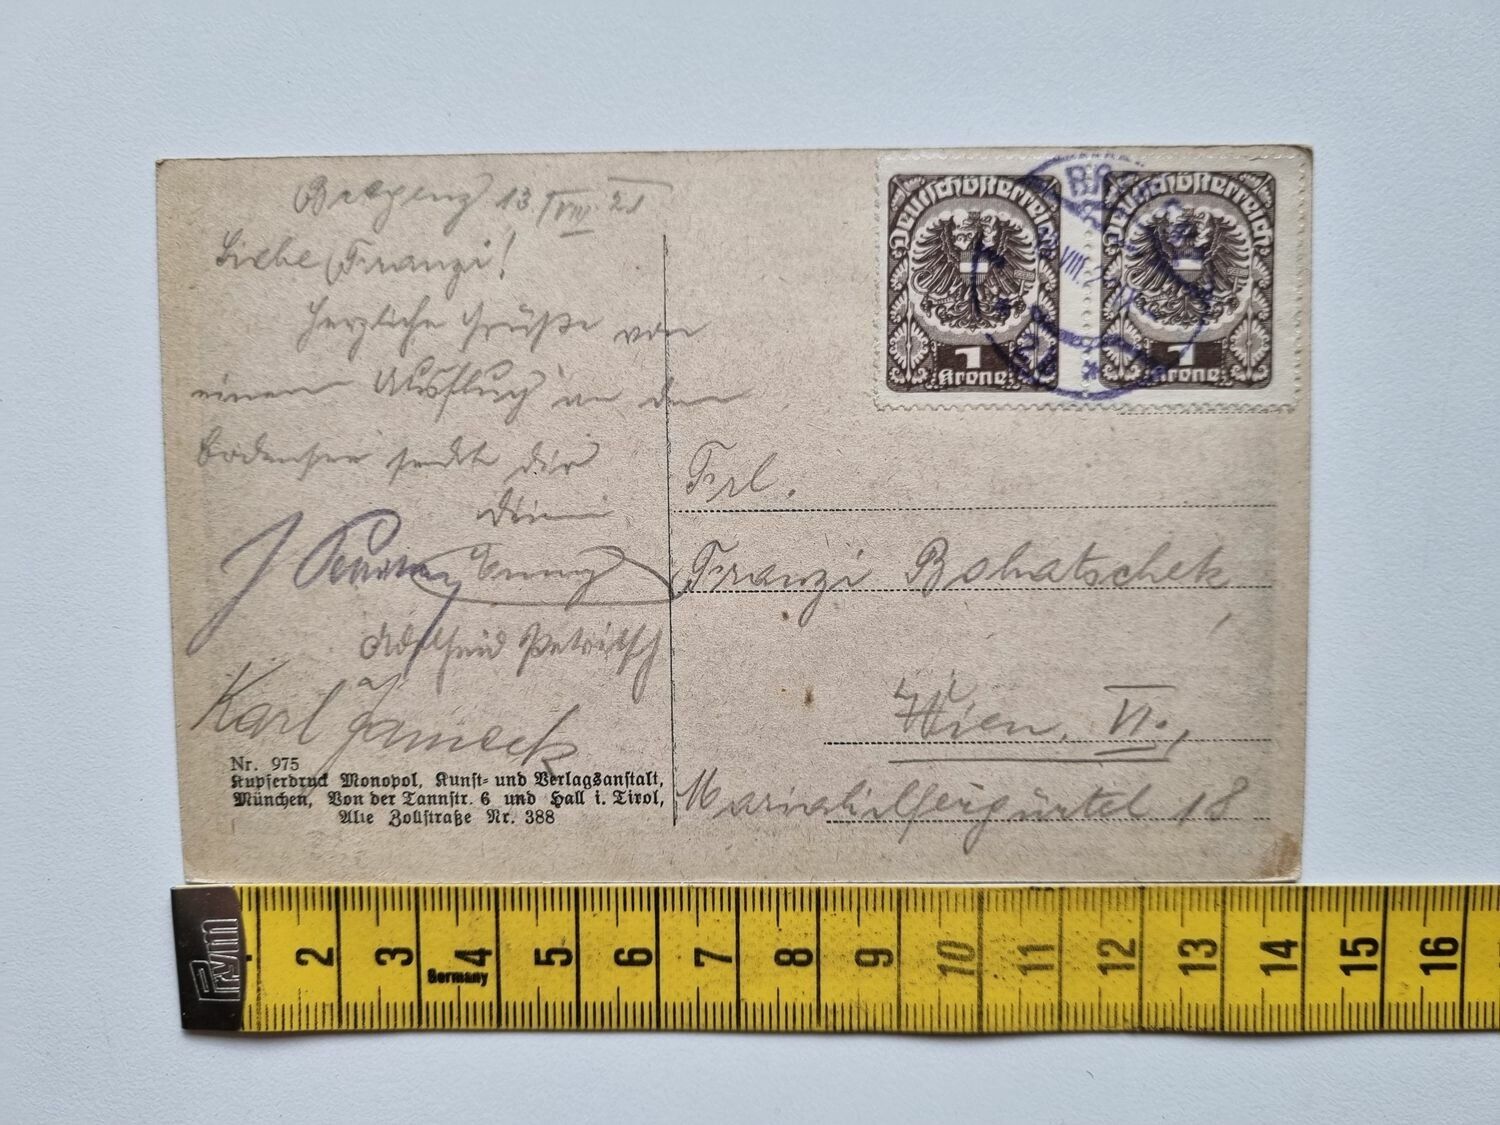 Bregenz 13. VIII. 21
Liebe Franzi!
Herzliche Grüße von
einem Ausflug an den
Bodensee sendet dir
deine
Karl Janecek
Nr. 975
Kupferdruck Monopol, Kunst- und Verlagsanstalt,
München, Von der Tannstr. 6 und Hall i. Tirol,
Alte Zollstraße Nr. 388
Deutschösterreich
1
Krone
Deutschösterreich
1
Krone
BRE
VIII. 21
Frl.
Franzi Bohatschek,
Wien, VI.,
Mariahilfergürtel 18
pym
2 3 4 5 6 7 8 9 10 11 12 13 14 15 16
Germany